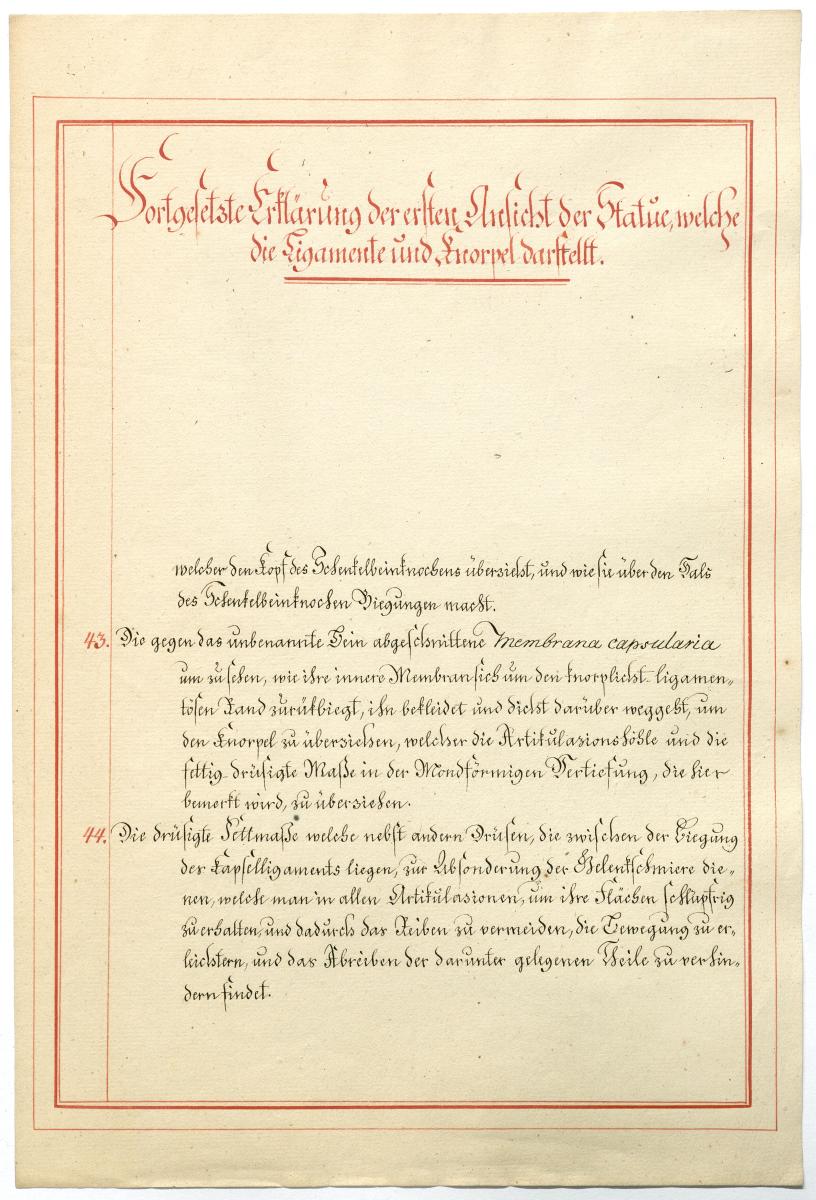 Fortgesetzte Erklärung der ersten Ansicht der Statue, welche
die Ligamente und Knorpel darstellt.
welcher den Kopf des Schenkelbeinknochens überzieht, und wie sie über den Hals
des Schenkelbeinknochen Biegungen macht.
43. Die gegen das unbenannte Bein abgeschnittene Membrana capsularia
um zu sehen, wie ihre innere Membran sich um den knorplicht-ligamen-
tösen Rand zurükbiegt, ihn bekleidet und dicht darüber weggeht, um
den Knorpel zu überziehen, welcher die Artikulazionshöhle und die
fettig-drüsigte Maße in der Mondförmigen Vertiefung, die hier
bemerkt wird, zu überziehen.
44. Die drüsigte Fettmaße welche nebst andern Drüsen, die zwischen der Biegung
des Kapselligaments liegen, zur Absonderung der Gelenkschmiere die-
nen, welche man in allen Artikulazionen, um ihre Flächen schlüpfrig
zu erhalten, und dadurch das Reiben zu vermeiden, die Bewegung zu er-
leichtern, und das Abreiben der darunter gelegenen Theile zu verhin-
dern findet.